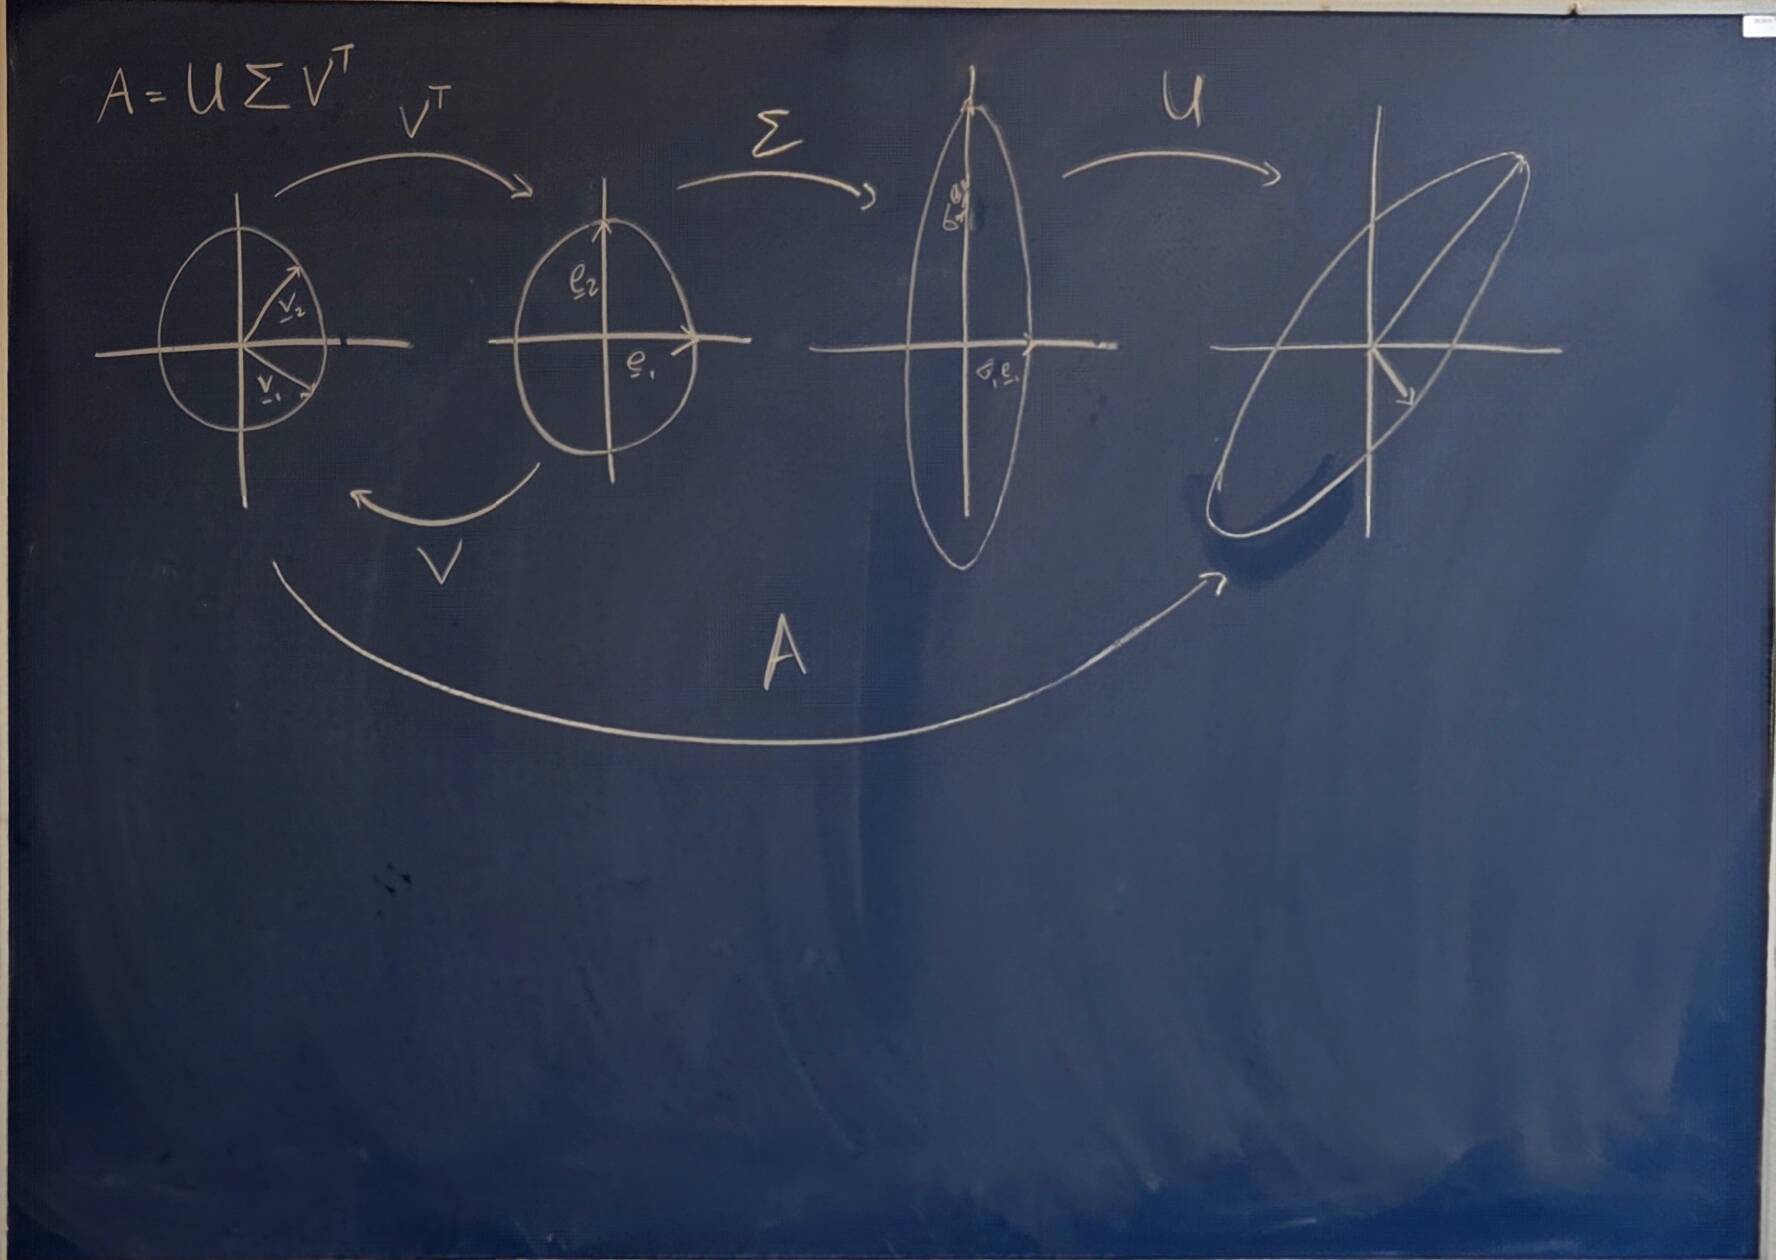 A = U Σ Vᵀ
Vᵀ
Σ
U
v₂
v₁
e₂
e₁
σ₂e₂
σ₁e₁
V
A